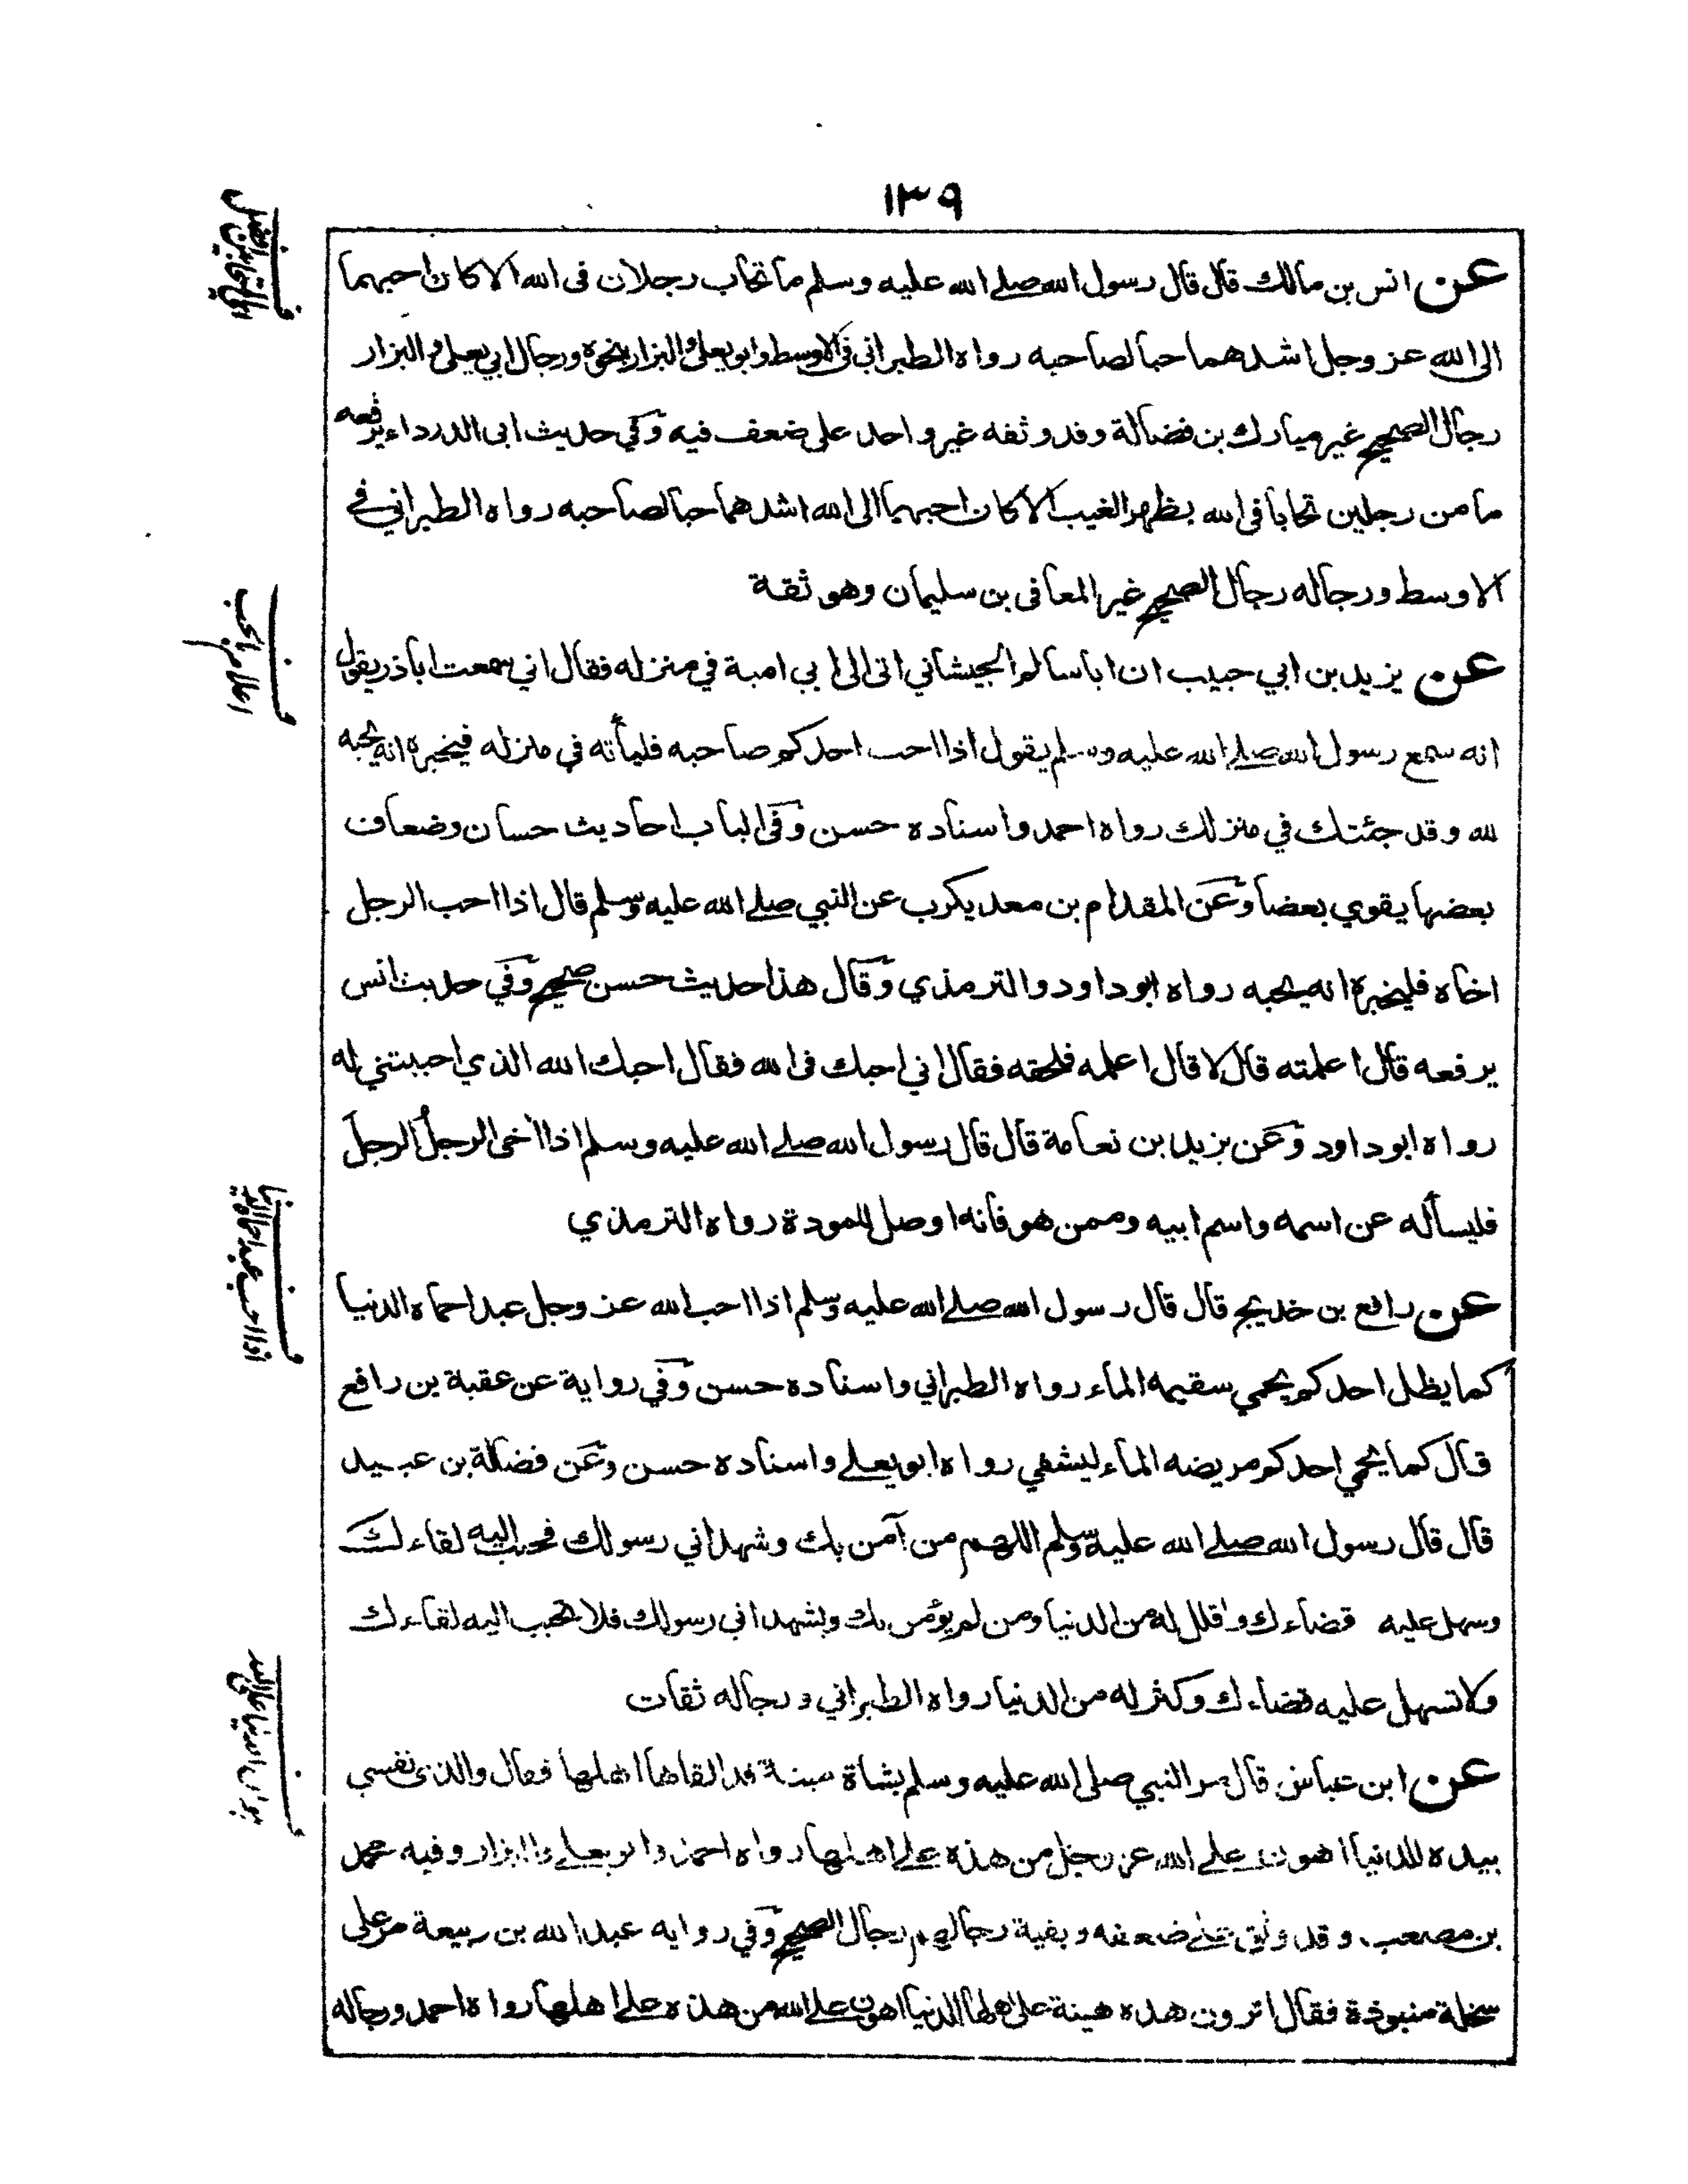 ١٣٩
عن انس بن مالك قال قال رسول الله صلے الله عليه وسلم ما تحاب رجلان فى الله الا كان احبهما
الى الله عز وجل اشدهما حبا لصاحبه رواه الطبرانى فى الاوسط وابو يعلى والبزار بنحوه ورجال ابي يعلى والبزار
رجال الصحيح غير مبارك بن فضالة وقد وثقه غير واحد على ضعف فيه وفي حديث ابى الدرداء يرفعه
ما من رجلين تحابا فى الله بظهر الغيب الا كان احبهما الى الله اشدهما حبا لصاحبه رواه الطبراني في
الاوسط ورجاله رجال الصحيح غير المعافى بن سليمان وهو ثقة
عن يزيد بن ابي حبيب ان ابا سالم الجيشاني اتى الى ابي امية في منزله فقال اني سمعت ابا ذر يقول
انه سمع رسول الله صلے الله عليه وسلم يقول اذا احب احدكم صاحبه فليأته في منزله فيخبره انه يحبه
لله وقد جئتك في منزلك رواه احمد واسناده حسن وفى الباب احاديث حسان وضعاف
بعضها يقوي بعضا وعن المقدام بن معد يكرب عن النبي صلے الله عليه وسلم قال اذا احب الرجل
اخاه فليخبره انه يحبه رواه ابو داود والترمذي وقال هذا حديث حسن صحيح وفي حديث انس
يرفعه قال اعلمته قال لا قال اعلمه فلحقه فقال اني احبك فى الله فقال احبك الله الذي احببتني له
رواه ابو داود وعن يزيد بن نعامة قال قال رسول الله صلے الله عليه وسلم اذا آخى الرجلُ الرجلَ
فليسأله عن اسمه واسم ابيه وممن هو فانه اوصل للمودة رواه الترمذي
عن رافع بن خديج قال قال رسول الله صلے الله عليه وسلم اذا احب الله عز وجل عبدا حماه الدنيا
كما يظل احدكم يحمي سقيمه الماء رواه الطبراني واسناده حسن وفي رواية عن عقبة بن رافع
قال كما يحمي احدكم مريضه الماء ليشفي رواه ابو يعلے واسناده حسن وعن فضالة بن عبيد
قال قال رسول الله صلے الله عليه وسلم اللهم من آمن بك وشهد اني رسولك فحبب اليه لقاءك
وسهل عليه قضاءك واقلل له من الدنيا ومن لم يؤمن بك ويشهد اني رسولك فلا تحبب اليه لقاءك
ولا تسهل عليه قضاءك وكثر له من الدنيا رواه الطبراني ورجاله ثقات
عن ابن عباس قال مر النبي صلى الله عليه وسلم بشاة ميتة قد القاها اهلها فقال والذى نفسي
بيده للدنيا اهون علے الله عز وجل من هذه علے اهلها رواه احمد وابو يعلے والبزار وفيه محمد
بن مصعب وقد وثق علے ضعفه وبقية رجالهم رجال الصحيح وفي رواية عبد الله بن ربيعة مر على
سخلة منبوذة فقال اترون هذه هينة على اهلها الدنيا اهون علے الله من هذه علے اهلها رواه احمد ورجاله
اعلام من يحب
اذا احب عبدا حماه الدنيا